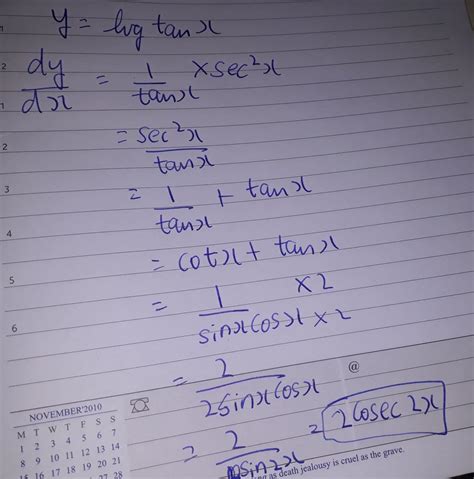 y = log tanx
dy/dx = 1/tanx × sec²x
= sec²x/tanx
= 1/tanx + tanx
= cotx + tanx
= 1 × 2/sinx cosx × 2
= 2/2sinx cosx
= 2/sin2x = 2cosec2x
@
NOVEMBER'2010
M T W T F S S
1 2 3 4 5 6 7
8 9 10 11 12 13 14
15 16 17 18 19 20 21
27 28
as death jealousy is cruel as the grave.
1
2
1
2
3
4
5
6